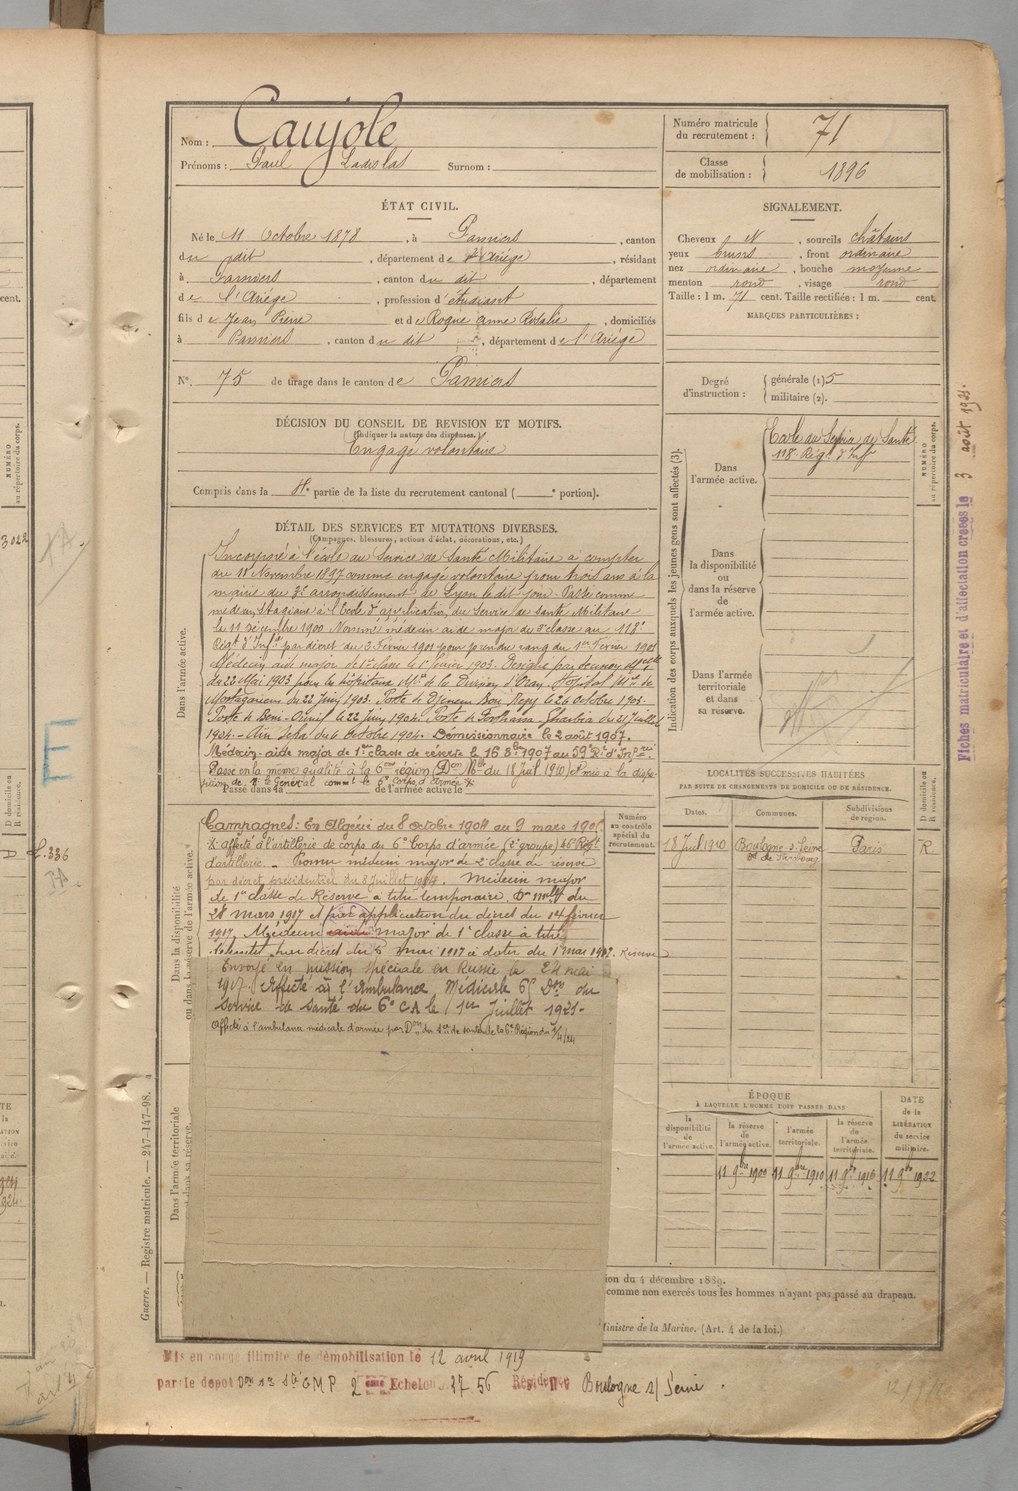 Nom : Caujole
Prénoms : Paul Ladislas Surnom :
Numéro matricule du recrutement : 71
Classe de mobilisation : 1896
ÉTAT CIVIL.
Né le 11 Octobre 1878, à Pamiers, canton
du dit, département de l'Ariège, résidant
à Pamiers, canton du dit, département
de l'Ariège, profession d'étudiant
fils de Jean Pierre et de Roque Anne Rosalie, domiciliés
à Pamiers, canton du dit, département de l'Ariège
N°. 75 de tirage dans le canton de Pamiers
SIGNALEMENT.
Cheveux N, sourcils châtains
yeux bruns, front ordinaire
nez ordinaire, bouche moyenne
menton rond, visage rond
Taille : 1 m. 71 cent. Taille rectifiée : 1 m. cent.
MARQUES PARTICULIÈRES :
Degré d'instruction : générale (1) 5
militaire (2).
DÉCISION DU CONSEIL DE REVISION ET MOTIFS.
(Indiquer la nature des dispenses.)
Engagé volontaire
Compris dans la 4e partie de la liste du recrutement cantonal ( e portion).
DÉTAIL DES SERVICES ET MUTATIONS DIVERSES.
(Campagnes, blessures, actions d'éclat, décorations, etc.)
Dans l'armée active.
Incorporé à l'école du Service de Santé Militaire à compter
du 11 Novembre 1897 comme engagé volontaire pour trois ans à la
mairie du 3e arrondissement de Lyon le dit jour. Passé comme
médecin stagiaire à l'Ecole d'application du Service de santé Militaire
le 11 Décembre 1900 Nommé médecin aide major de 2e classe au 118e
Régt d'Infie par décret du 3 Février 1901 pour prendre rang du 1er Février 1901
Médecin aide major de 1re classe le 1er février 1903. Désigné par décision Mlle
du 22 Mai 1903 pour les hôpitaux Mres de la Division d'Oran Hopital Mre de
Mostaganem du 22 juin 1903. Poste de Djenien Bou Rezg le 26 Octobre 1903.
Poste de Beni-Ounif le 22 juin 1904. Poste de Forthassa Gharbia du 21 Juillet
1904. Aïn Sefra du 6 Octobre 1904. Démissionnaire le 2 août 1907.
Médecin-aide major de 1re classe de réserve le 16 8bre 1907 au 59e Rt d'Infie
Passé en la même qualité à la 6me région (Don Mlle du 18 Juil. 1910) et mis à la dispo-
sition de M. le Général commt le 6e Corps d'Armée
Passé dans la de l'armée active le
Dans la disponibilité ou dans la réserve de l'armée active.
Numéro au contrôle spécial du recrutement.
Campagnes : En Algérie du 8 Octobre 1904 au 9 mars 190
Affecté à l'artillerie de corps du 6e Corps d'armée (2e groupe) 46e Régt
d'artillerie. Promu médecin major de 2e classe de réserve
par décret présidentiel du 8 Juillet 1914. Médecin major
de 1re classe de Réserve à titre temporaire Don mlle du
28 mars 1917 et par application du décret du 14 février
1917, Médecin major de 1e classe à titre
par décret du 6 mai 1917 à dater du 1er mai 1917. Réserve
Envoyé en mission spéciale en Russie le 24 mai
1917. Affecté à l'Ambulance Médicale 6e Don du
Service de Santé du 6e CA le 1er Juillet 1921.
Affecté à l'ambulance médicale d'armée par Don du Sce de santé de la 6e Région du 1/4/24
Dans l'armée territoriale et dans sa réserve.
Indication des corps auxquels les jeunes gens sont affectés (3).
Dans l'armée active.
Ecole du Service de Santé
118e Régt d'Inf
Dans la disponibilité ou dans la réserve de l'armée active.
Dans l'armée territoriale et dans sa réserve.
NUMÉRO au répertoire du corps.
LOCALITÉS SUCCESSIVES HABITÉES
PAR SUITE DE CHANGEMENTS DE DOMICILE OU DE RÉSIDENCE.
Dates. Communes. Subdivisions de région. D domicile ou R résidence.
18 Juil 1910 Boulogne-s-Seine Paris R
ÉPOQUE
À LAQUELLE L'HOMME DOIT PASSER DANS
la disponibilité de l'armée active. la réserve de l'armée active. l'armée territoriale. la réserve de l'armée territoriale. DATE de la LIBÉRATION du service militaire.
11 9bre 1900 11 9bre 1910 11 9bre 1916 11 9bre 1922
ion du 4 décembre 1889.
comme non exercés tous les hommes n'ayant pas passé au drapeau.
Ministre de la Marine. (Art. 4 de la loi.)
Guerre. — Registre matricule. — 247-147-98.
Fiches matriculaire et d'affectation créées le 3 août 1921.
Mis en congé illimité de démobilisation le 12 avril 1919
par le dépôt GMP 2eme Echelon 3756 Résidence Boulogne s/ Seine.